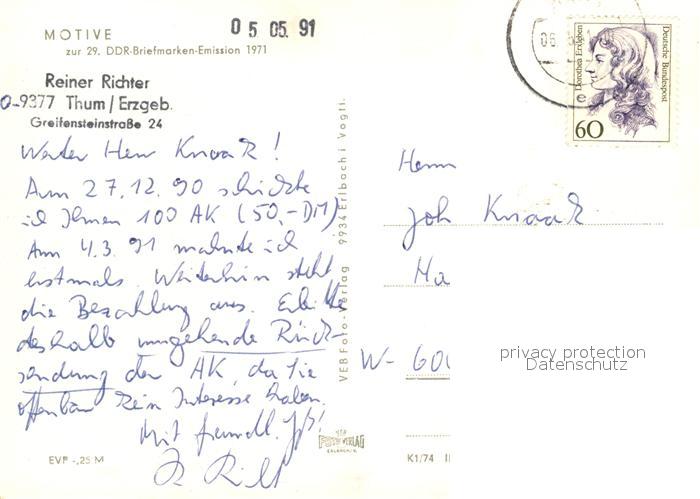 MOTIVE
zur 29. DDR-Briefmarken-Emission 1971
05 05. 91
Reiner Richter
O-9377 Thum/Erzgeb.
Greifensteinstraße 24
Werter Herr Knaak!
Am 27.12.90 schickte
ich Ihnen 100 AK (50,-DM)
Am 4.3.91 mahnte ich
erstmals. Weiterhin steht
die Bezahlung aus. Erbitte
deshalb umgehende Rück-
sendung der AK, da Sie
offenbar kein Interesse haben.
Mit freundl.
EVP -,25 M
VEB Foto-Verlag 9934 Erlbach i Vogtl.
FOTO VERLAG
ERLBACH
K1/74
Dorothea Erxleben
Deutsche Bundespost
60
Herrn
Joh Knaak
Ha
W- 600
privacy protection
Datenschutz